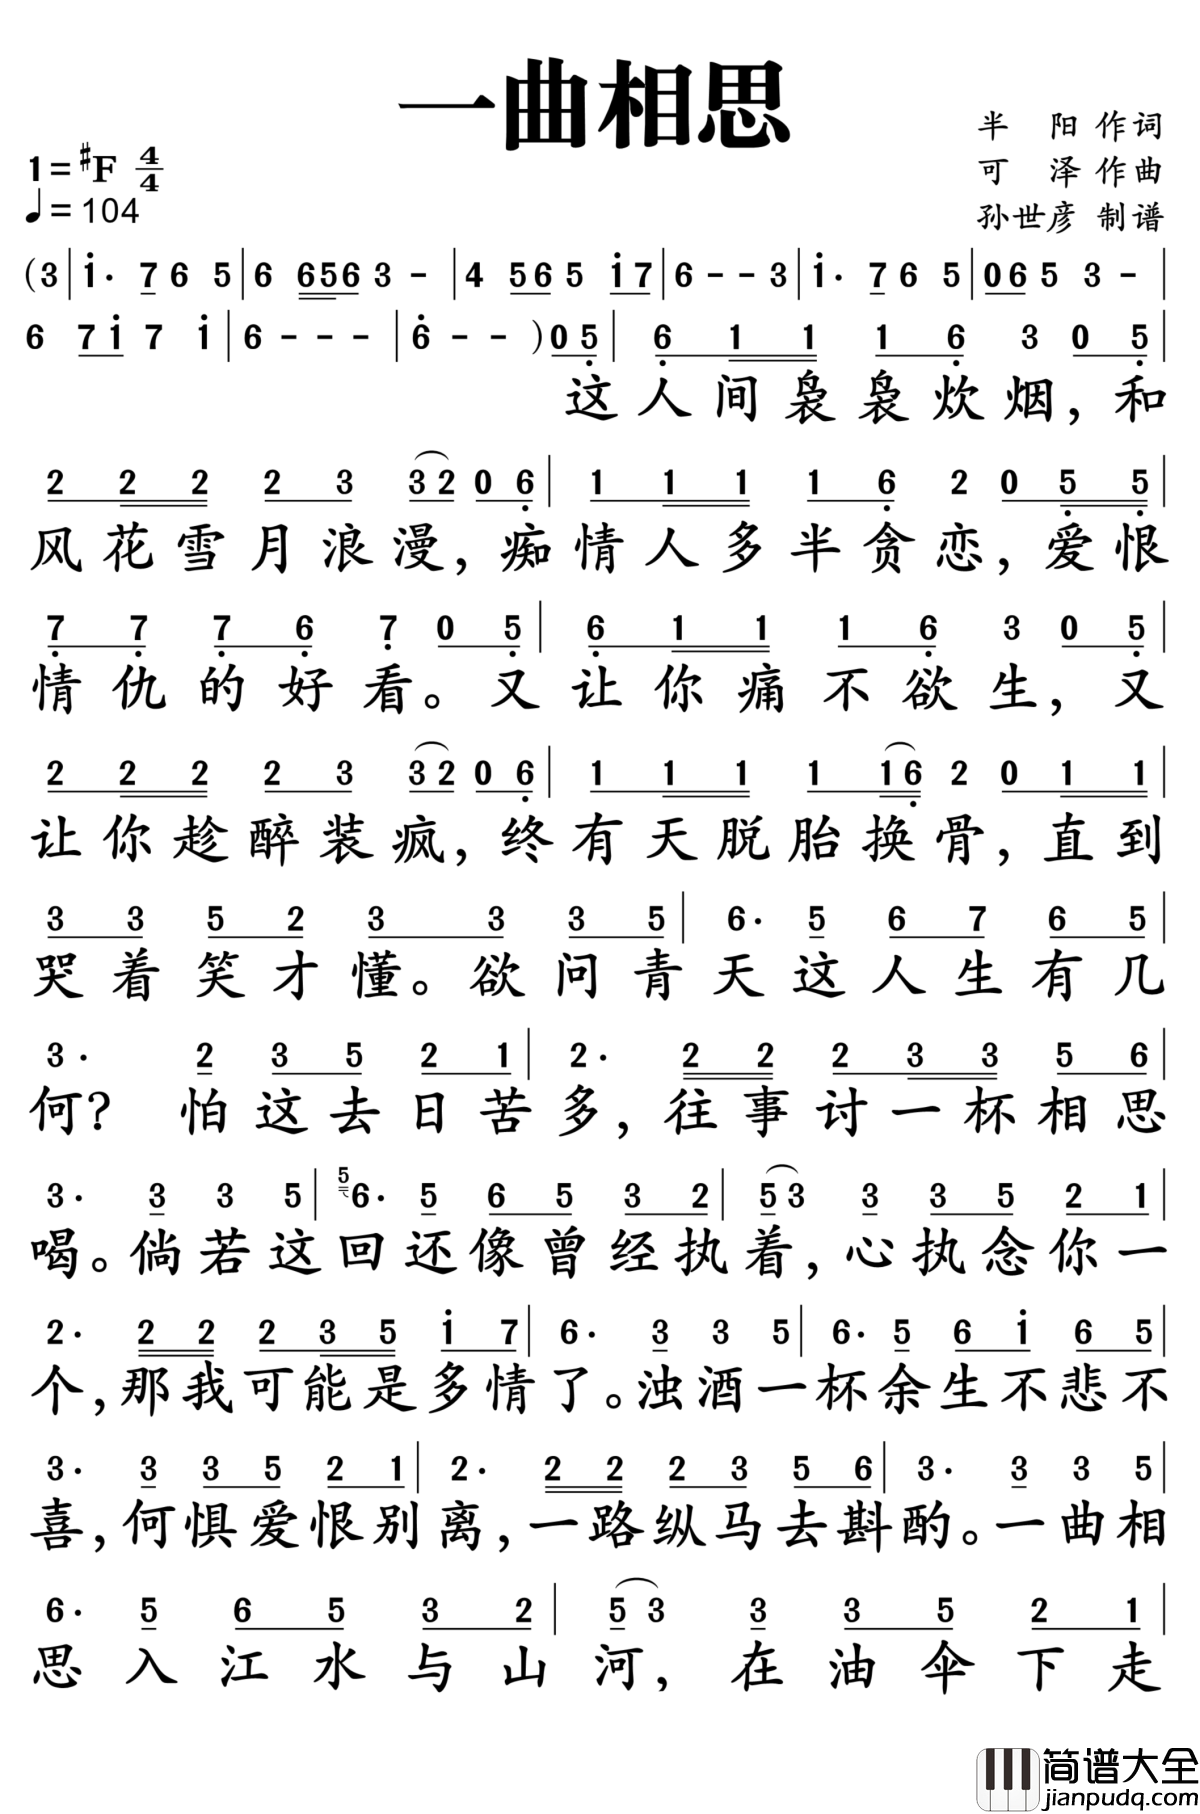 一曲相思
半 阳 作词
1=♯F 4/4
可 泽 作曲
♩=104
孙世彦 制谱
(3|i· 7 6 5|6 656 3 -|4 56 5 i7|6 - - 3|i· 7 6 5|06 5 3 -|
6 7i 7 i|6 - - -|6 - - )05|6 1 1 1 6 3 0 5|
这人间袅袅炊烟,和
2 2 2 2 3 3 2 0 6|1 1 1 1 6 2 0 5 5|
风花雪月浪漫,痴情人多半贪恋,爱恨
7 7 7 6 7 0 5|6 1 1 1 6 3 0 5|
情仇的好看。又让你痛不欲生,又
2 2 2 2 3 3 2 0 6|1 1 1 1 1 6 2 0 1 1|
让你趁醉装疯,终有天脱胎换骨,直到
3 3 5 2 3 3 3 5|6· 5 6 7 6 5|
哭着笑才懂。欲问青天这人生有几
3· 2 3 5 2 1|2· 2 2 2 3 3 5 6|
何?怕这去日苦多,往事讨一杯相思
3· 3 3 5|5 6· 5 6 5 3 2|5 3 3 3 5 2 1|
喝。倘若这回还像曾经执着,心执念你一
2· 2 2 2 3 5 i 7|6· 3 3 5|6· 5 6 i 6 5|
个,那我可能是多情了。浊酒一杯余生不悲不
3· 3 3 5 2 1|2· 2 2 2 3 5 6|3· 3 3 5|
喜,何惧爱恨别离,一路纵马去斟酌。一曲相
6· 5 6 5 3 2|5 3 3 3 5 2 1|
思入江水与山河,在油伞下走
简谱大全
jianpudq.com